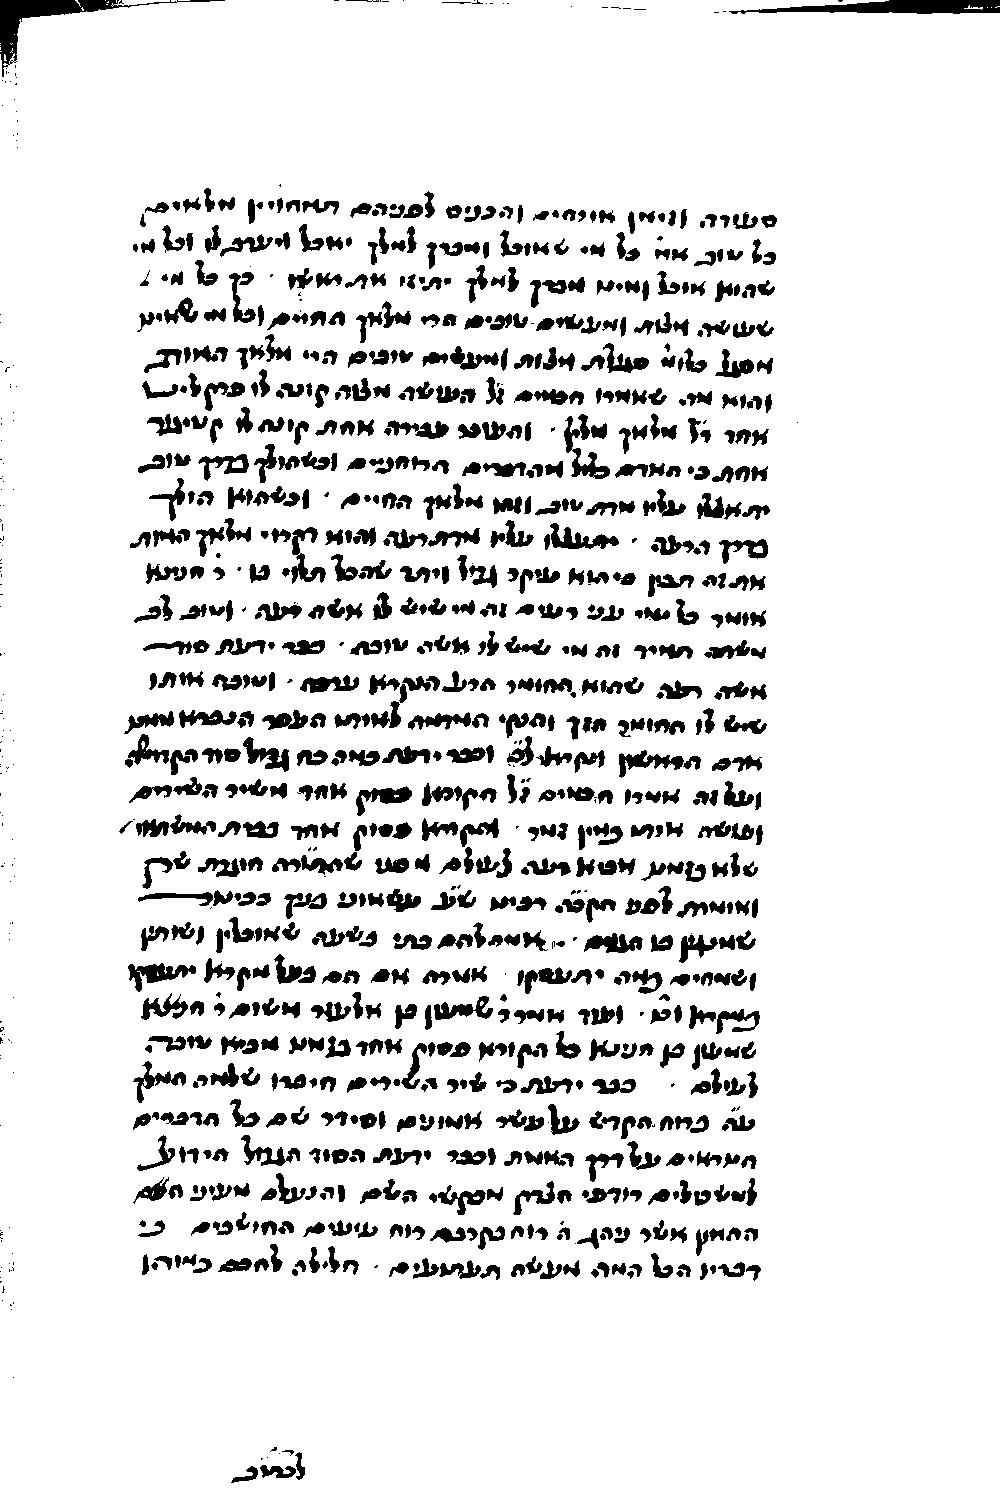 סעודה וזימן אורחים והכניס לפניהם תמחויין מלאים
כל טוב אמ' כל מי שאוכל ומברך למלך יאכל ויערב לו וכל מי
שהוא אוכל ואינו מברך למלך יתיזו את ראשו · כך כל מי
שעושה מצות ומעשים טובים הרי מלאך החיים וכל מי שאינו
מסגל כלו' פעלת מצות ומעשים טובים הרי מלאך המות
והוא מה שאמרו חכמים ז"ל העושה מצוה קונה לו פרקליט
אחד ר"ל מלאך מליץ · והעובר עבירה אחת קונה לו קטיגור
אחת כי האדם כלול מהדברים הרוחניים וכשהולך בדרך טוב
יתאצלו עליו מדת טוב וזהו מלאך החיים · וכשהוא הולך
בדרך הרעה · יתאצלו עליו מדת רעה והוא הקרוי מלאך המות
את זה תבין כי הוא עיקר גדול ויתד שהכל תלוי בו · ר' חנינא
אומר כל ימי עני רעים זה מי שיש לו אשה רעה · וטוב לב
משתה תמיד זה מי שיש לו אשה טובה · כבר ידעת סוד
אשה רעה שהוא החומר הרע הנקרא ערפה · וטובה אותו
שיש לו החומר הזך והנקי המדמה לאותו העפר הנברא ממנו
אדם הראשון ונקראו לב וכבר ידעת כמה כח גדול סוד הקריאה
ועל זה אמרו חכמים ז"ל הקורא פסוק אחד משיר השירים
ועושה אותו כמין זמר · והקורא פסוק אחד בבית המשתאות
שלא בזמנו מביא רעה לעולם מפני שהתורה חוגרת שק
ואומרת לפני הקב"ה רבינו ש"ע עשאוני בניך ככינור
שמנגן בו הגוים · אמר להם בתי בשעה שאוכלין ושותין
ושמחים במה יתעסקו · אמרה אם הם בעל מקרא יתעסקו
במקרא וכו' · ועוד אמר ר' שמעון בן אלעזר משום ר' חנינא
שמעון בן חנינא כל הקורא פסוק אחד בזמנו מביא טובה
לעולם · כבר ידעת כי שיר השירים חיברו שלמה המלך
ע"ה ברוח הקדש על עשר אמונים וסידר שם כל הדברים
המראים על דרך האמת וכבר ידעת הסוד הגדול הידוע
למשכילים רודפי הצדק מבקשי השם והנעלם מעיני העם
ההמון אשר נהג ה' רוח בקרבם רוח עועים החושבים כי
דבריו הכל המה מעשה תעתועים · חלילה לחכם כמוהו
לכתוב